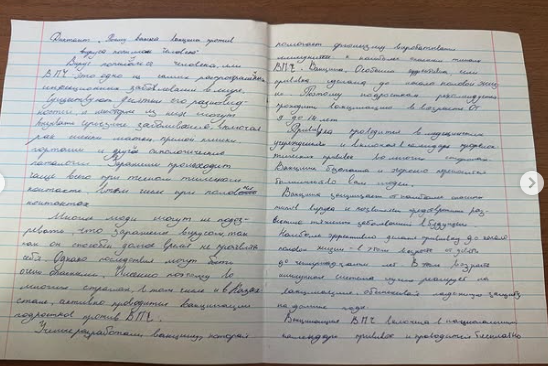 Диктант „Почему важна вакцина против
вируса папилломы человека"
Вирус папилломы человека, или
ВПЧ это одно из самых распространённых
инфекционных заболеваний в мире.
Существуют десятки его разновид-
ности, и некоторые из них могут
вызвать серьёзные заболевания, включая
рак шейки матки,
гортани и другие онкологические
патологии. Заражение происходит
чаще всего при тесном телесном
контакте, в том числе при половых
контактах.
Многие люди могут не подоз-
ревать, что заражены вирусом так
как он способен долгое время не проявлять
себя. Однако последствия могут быть
очень опасными. Именно поэтому во
многих странах, в том числе и в Казах
стане, активно проводится вакцинация
подростков против ВПЧ.
Учёные разработали вакцину, которая
помогает организму вырабатывать
иммунитет к наиболее опасным типам
ВПЧ. Вакцина особенно эффективна, если
прививка сделана до начала половой жизни
Поэтому подросткам рекомендуют
проходить вакцинацию в возрасте от
9 до 14 лет
Прививка проводится в медицинских
учреждениях и включена в календарь профилак
тических прививок во многих странах.
Вакцина безопасна и хорошо переносится
большинством людей.
Вакцина защищает от наиболее опасных
типов вируса и позволяет предотвратить раз-
витие тяжёлых заболеваний в будущем
Наиболее эффективно делать прививку до начала
половой жизни - в этом возрасте от девяти
до четырнадцати лет. В этом возрасте
иммунная система лучше реагирует на
вакцинацию, обеспечивая надёжную защиту
на долгие годы.
Вакцинация ВПЧ включена в национальный
календарь прививок и проводится бесплатно